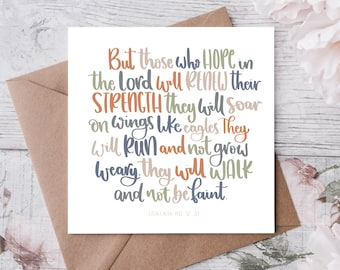 But those who HOPE in
the Lord will RENEW their
STRENGTH they will soar
on wings like eagles They
will RUN and not grow
weary, they will WALK
and not be faint.